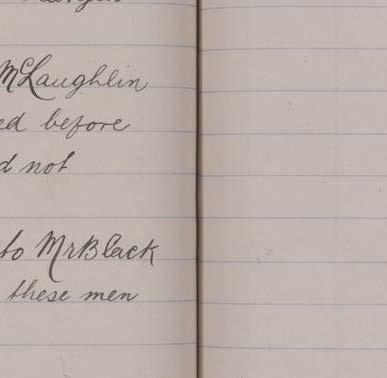 McLaughlin
ed before
d not
to Mr Black
these men